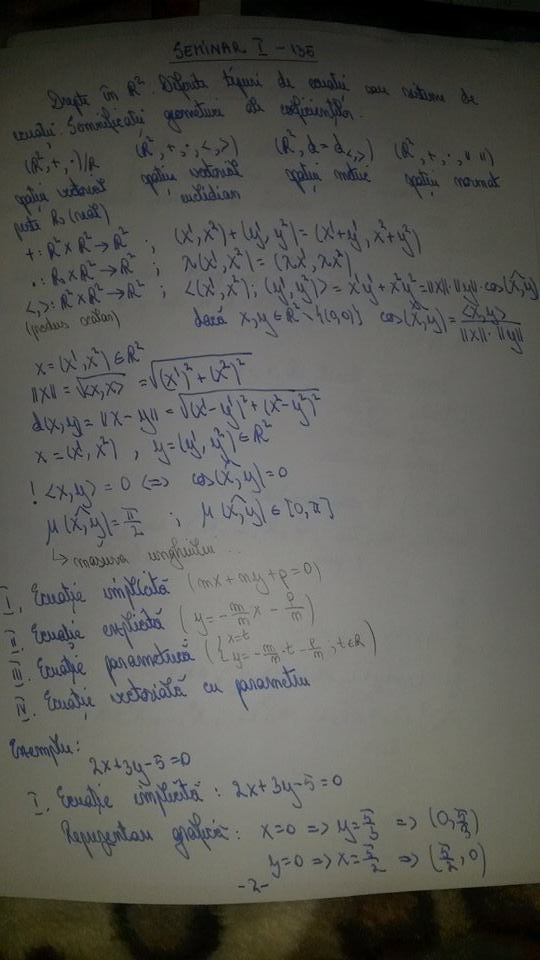 SEMINAR I - 135
Drepte în R². Diferite tipuri de ecuații sau sisteme de
ecuații. Semnificații geometrice ale coeficienților.
(R²,+,·)/R (R²,+,·,<,>) (R², d=d<,>) (R²,+,·,‖ ‖)
spațiu vectorial spațiu vectorial spațiu metric spațiu normat
peste R (real) euclidian
+: R²×R²→R² ; (x¹,x²)+(y¹,y²)=(x¹+y¹, x²+y²)
·: R×R²→R² ; λ(x¹,x²)=(λx¹,λx²)
<,>: R²×R²→R² ; <(x¹,x²);(y¹,y²)> = x¹y¹+x²y²=‖x‖·‖y‖·cos(x,y)
(produs scalar) dacă x,y∈R²\{(0,0)} cos(x,y)=<x,y>/‖x‖·‖y‖
x=(x¹,x²)∈R²
‖x‖=√<x,x> =√(x¹)²+(x²)²
d(x,y)=‖x-y‖=√(x¹-y¹)²+(x²-y²)²
x=(x¹,x²), y=(y¹,y²)∈R²
! <x,y>=0 <=> cos(x,y)=0
μ(x,y)=π/2 ; μ(x,y)∈[0,π]
↳ măsura unghiului
I. Ecuație implicită (mx+ny+p=0)
II. Ecuație explicită (y=-m/n x - p/n)
III. Ecuație parametrică ({x=t
y=-m/n·t-p/n ; t∈R)
IV. Ecuație vectorială cu parametru
Exemplu:
2x+3y-5=0
I. Ecuație implicită: 2x+3y-5=0
Reprezentare grafică: x=0 => y=5/3 => (0,5/3)
y=0 => x=5/2 => (5/2,0)
-2-